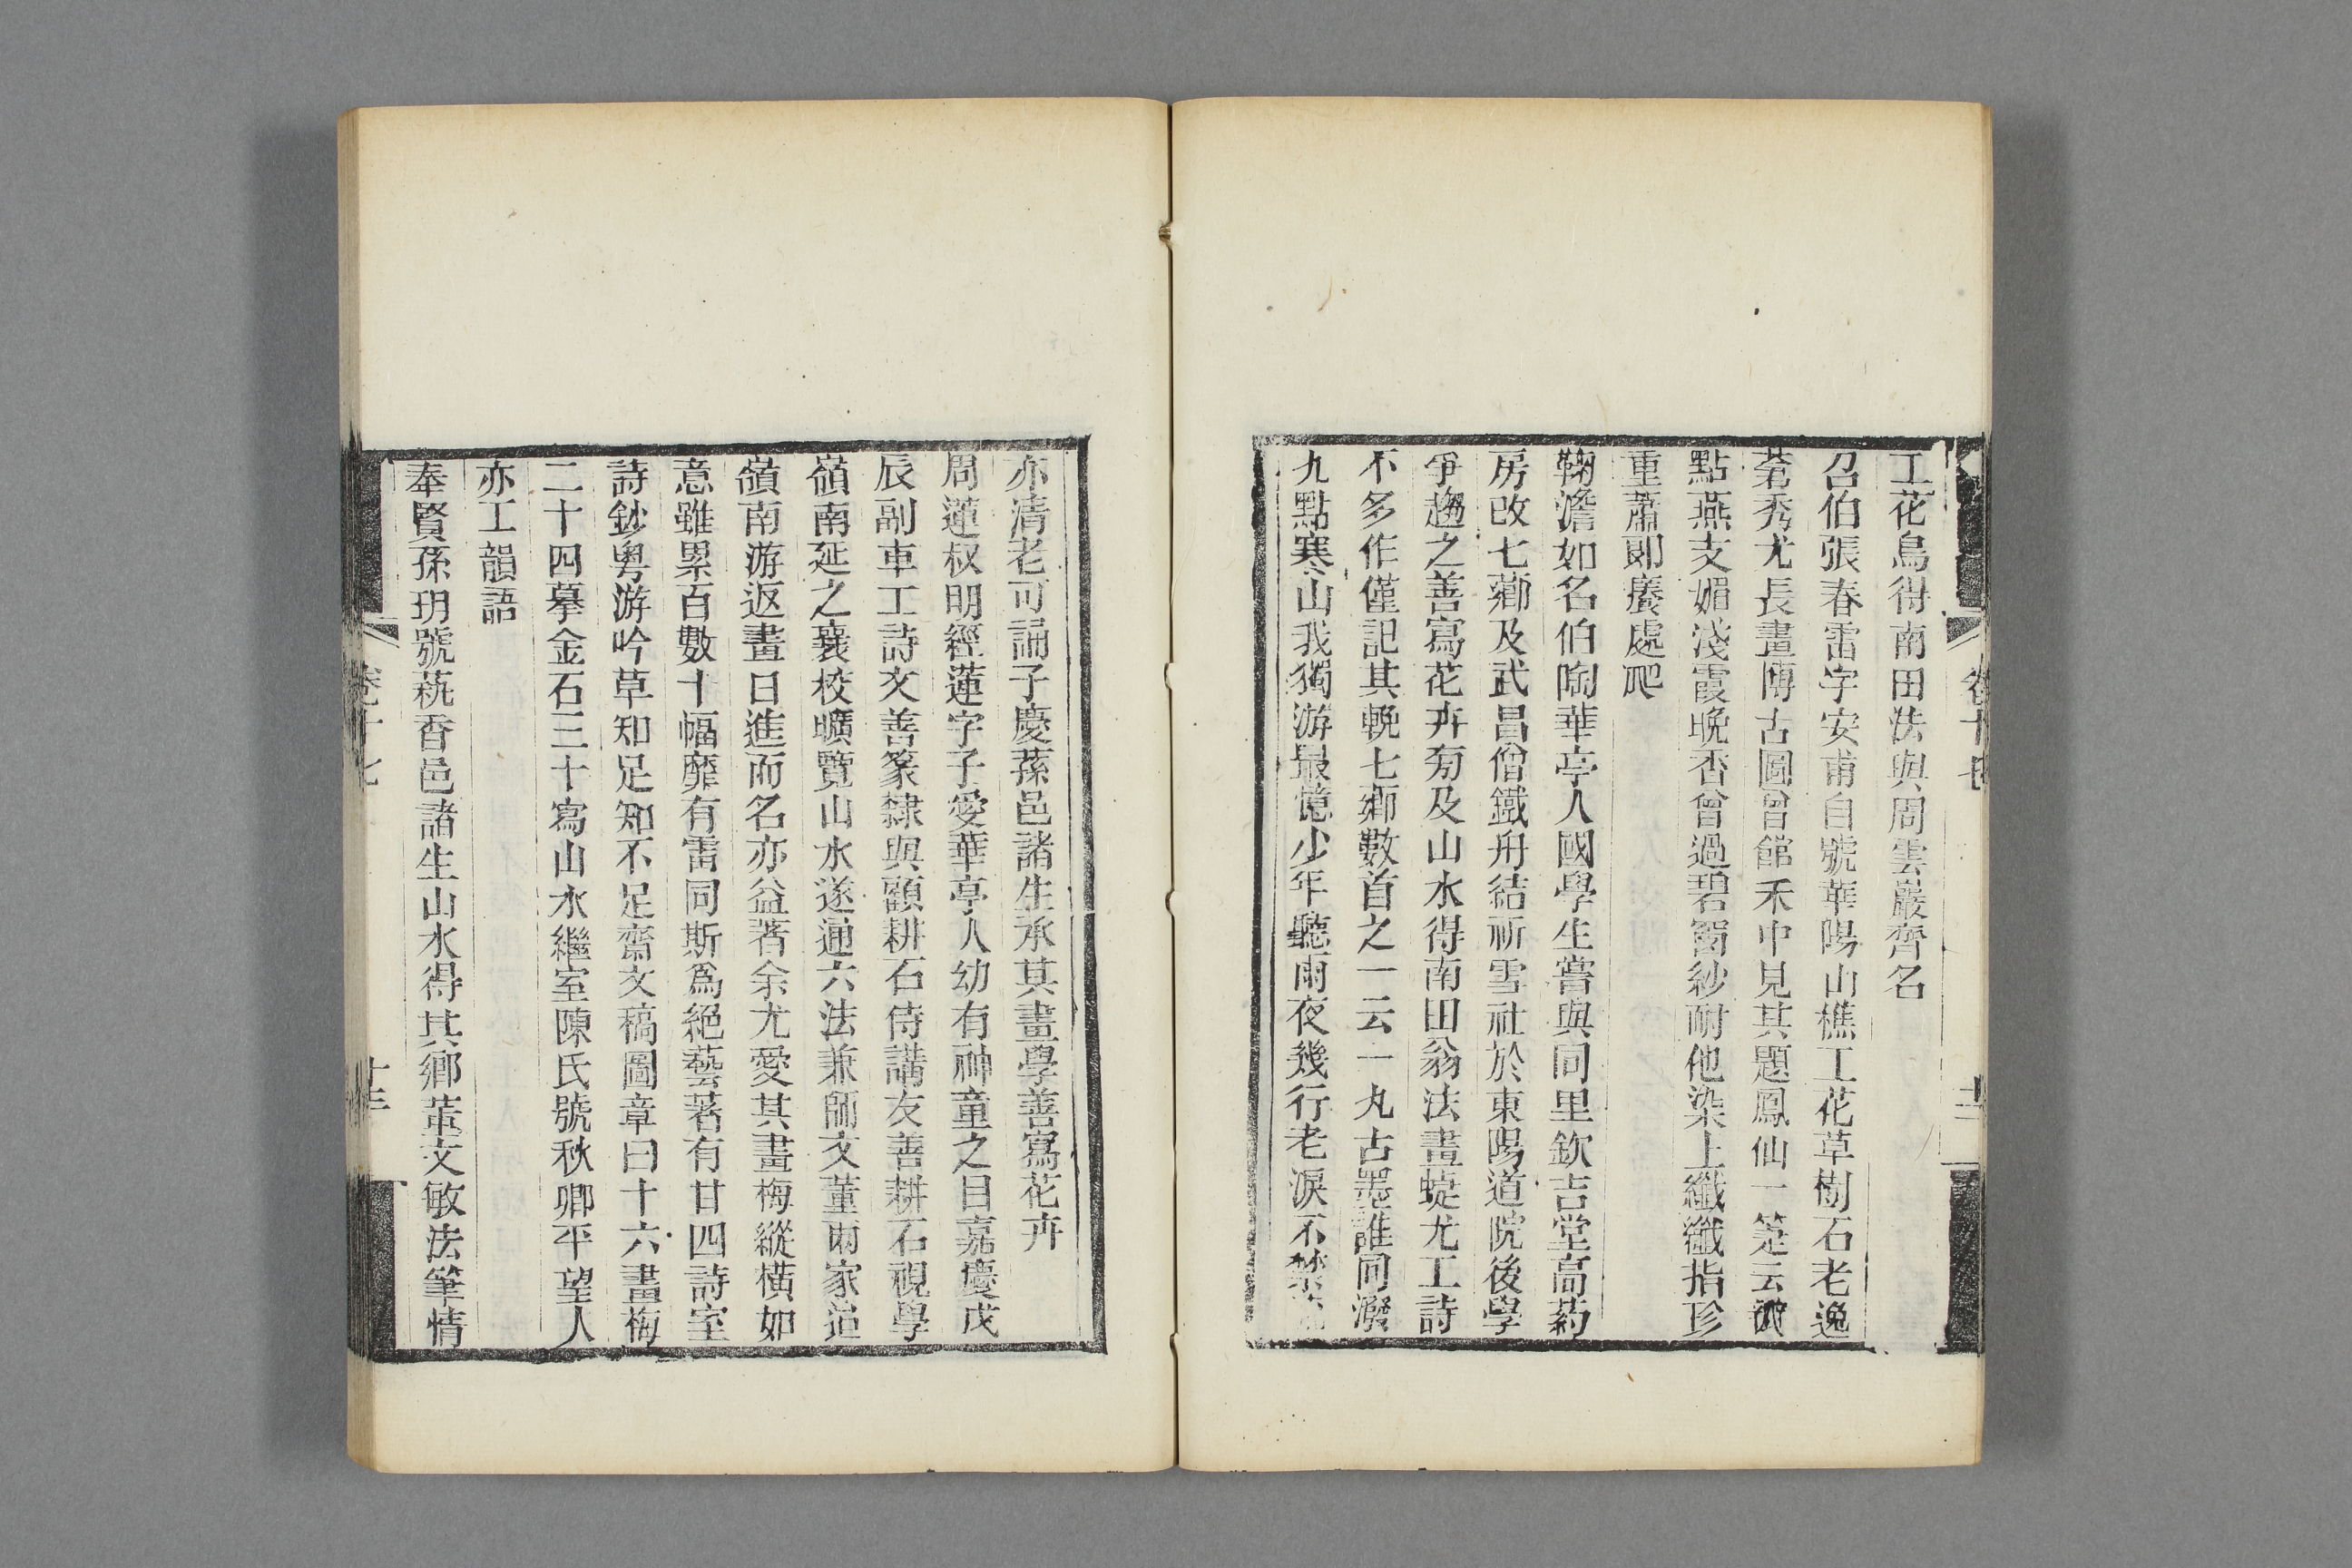 工花鳥得南田法與周雲巖齊名
召伯張春雷字安甫自號華陽山樵工花草樹石老逸
蒼秀尤長畫博古圖曾館禾中見其題鳳仙一箑云
點燕支媚淺霞晚香曾過碧窗紗耐他染上纖纖指珍
重蕭郎癢處爬
鞠澹如名伯陶華亭人國學生嘗與同里欽吉堂高葯
房改七薌及武昌僧鐵舟結祈雪社於東陽道院後學
爭趨之善寫花卉旁及山水得南田翁法畫蜨尤工詩
不多作僅記其輓七薌數首之一云一丸古墨誰同潑
九點寒山我獨游最憶少年聽雨夜幾行老淚不禁流
卷十七
亦清老可誦子慶蓀邑諸生承其畫學善寫花卉
周蓮叔明經蓮字子愛華亭人幼有神童之目嘉慶戊
辰副車工詩文善篆隸與顧耕石侍講友善耕石視學
嶺南延之襄校曠覽山水遂通六法兼師文董兩家追
嶺南游返畫日進而名亦益著余尤愛其畫梅縱橫如
意雖累百數十幅靡有雷同斯爲絕藝著有廿四詩室
詩鈔粤游吟草知足知不足齋文稿圖章曰十六畫梅
二十四摹金石三十寫山水繼室陳氏號秋卿平望人
亦工韻語
奉賢孫玥號蓺香邑諸生山水得其鄉董文敏法筆情
卷十七